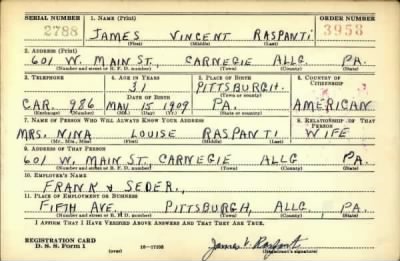 SERIAL NUMBER 1. NAME (Print) ORDER NUMBER
2788 JAMES VINCENT RASPANTI 3958
(First) (Middle) (Last)
2. ADDRESS (Print)
601 W. MAIN ST., CARNEGIE ALLG. PA.
(Number and street or R. F. D. number) (Town) (County) (State)
3. TELEPHONE 4. AGE IN YEARS 5. PLACE OF BIRTH 6. COUNTRY OF CITIZENSHIP
31 PITTSBURGH.
DATE OF BIRTH (Town or county)
CAR. 986 MAY 15 1909 PA. AMERICAN
(Exchange) (Number) (Mo.) (Day) (Yr.) (State or country)
7. NAME OF PERSON WHO WILL ALWAYS KNOW YOUR ADDRESS 8. RELATIONSHIP OF THAT PERSON
MRS. NINA LOUISE RASPANTI WIFE
(Mr., Mrs., Miss) (First) (Middle) (Last)
9. ADDRESS OF THAT PERSON
601 W. MAIN ST. CARNEGIE ALLG PA.
(Number and street or R. F. D. number) (Town) (County) (State)
10. EMPLOYER'S NAME
FRANK & SEDER.,
11. PLACE OF EMPLOYMENT OR BUSINESS
FIFTH AVE. PITTSBURGH, ALLG., PA.
(Number and street or R. F. D. number) (Town) (County) (State)
I AFFIRM THAT I HAVE VERIFIED ABOVE ANSWERS AND THAT THEY ARE TRUE.
REGISTRATION CARD
D. S. S. Form 1 (over) 16-17105 James V. Raspanti
(Registrant's signature)